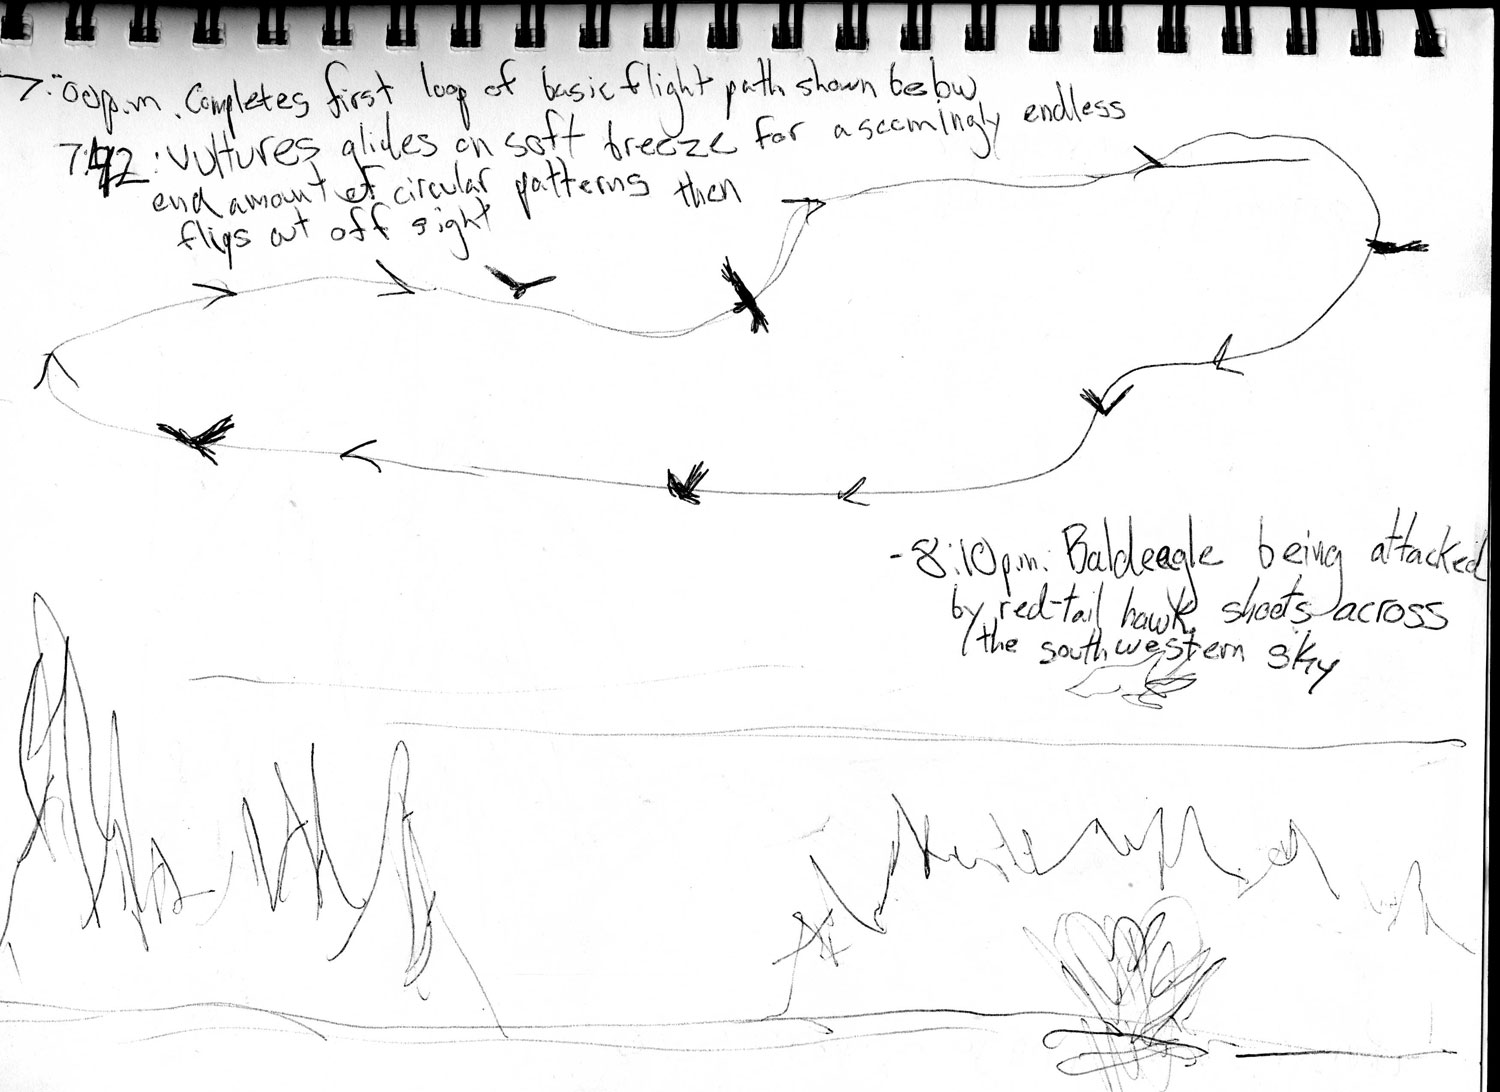 7:00p.m. Completes first loop of basic flight path shown below
7:42: Vultures glides on soft breeze for a seemingly endless
end amount of circular patterns then
fliys out off sight
-8:10p.m: Baldeagle being attacked
by red-tail hawk shoots across
the southwestern sky